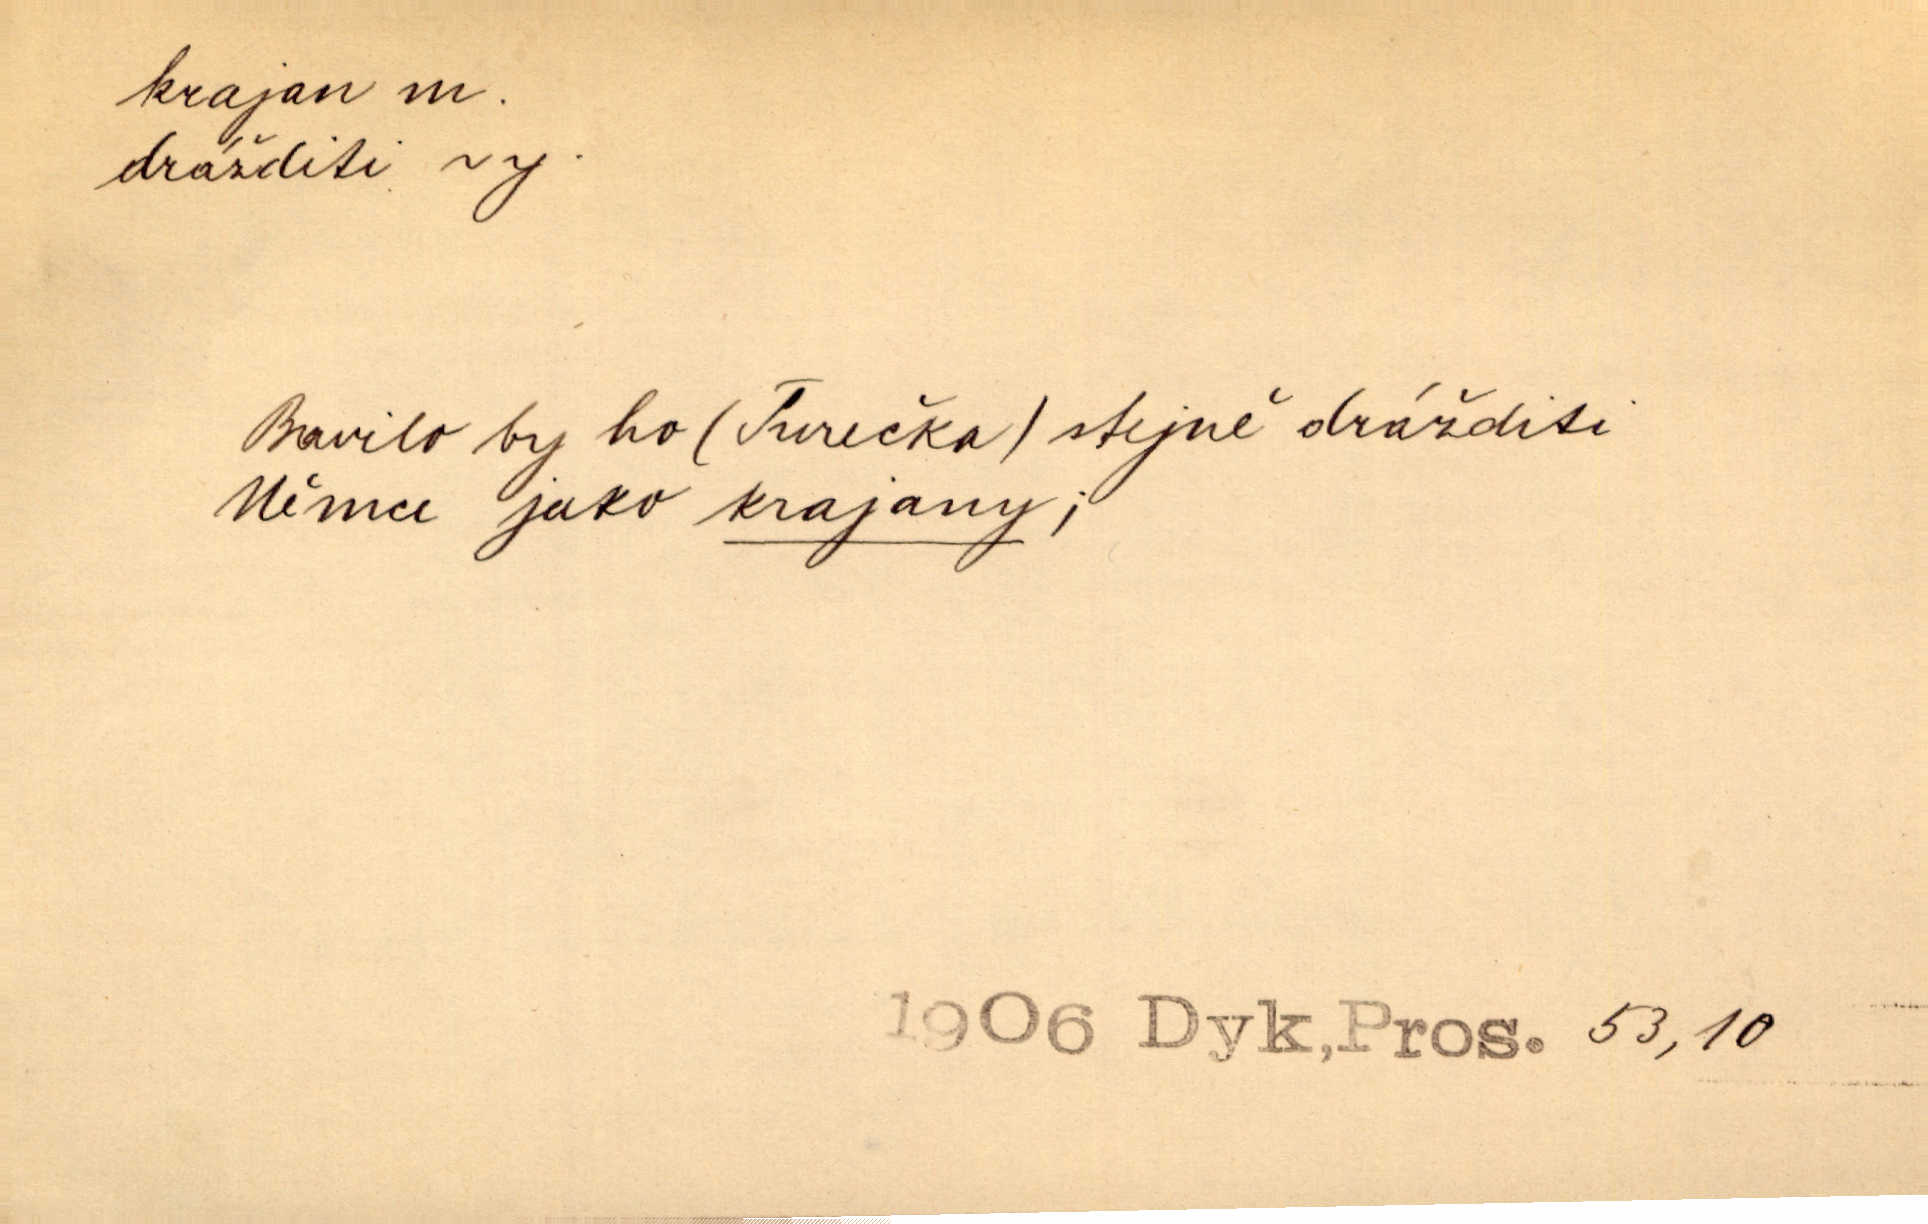 krajan m.
drážditi vy.
Bavilo by ho (Turečka) stejně drážditi
Němce jako krajany;
1906 Dyk, Pros. 53, 10